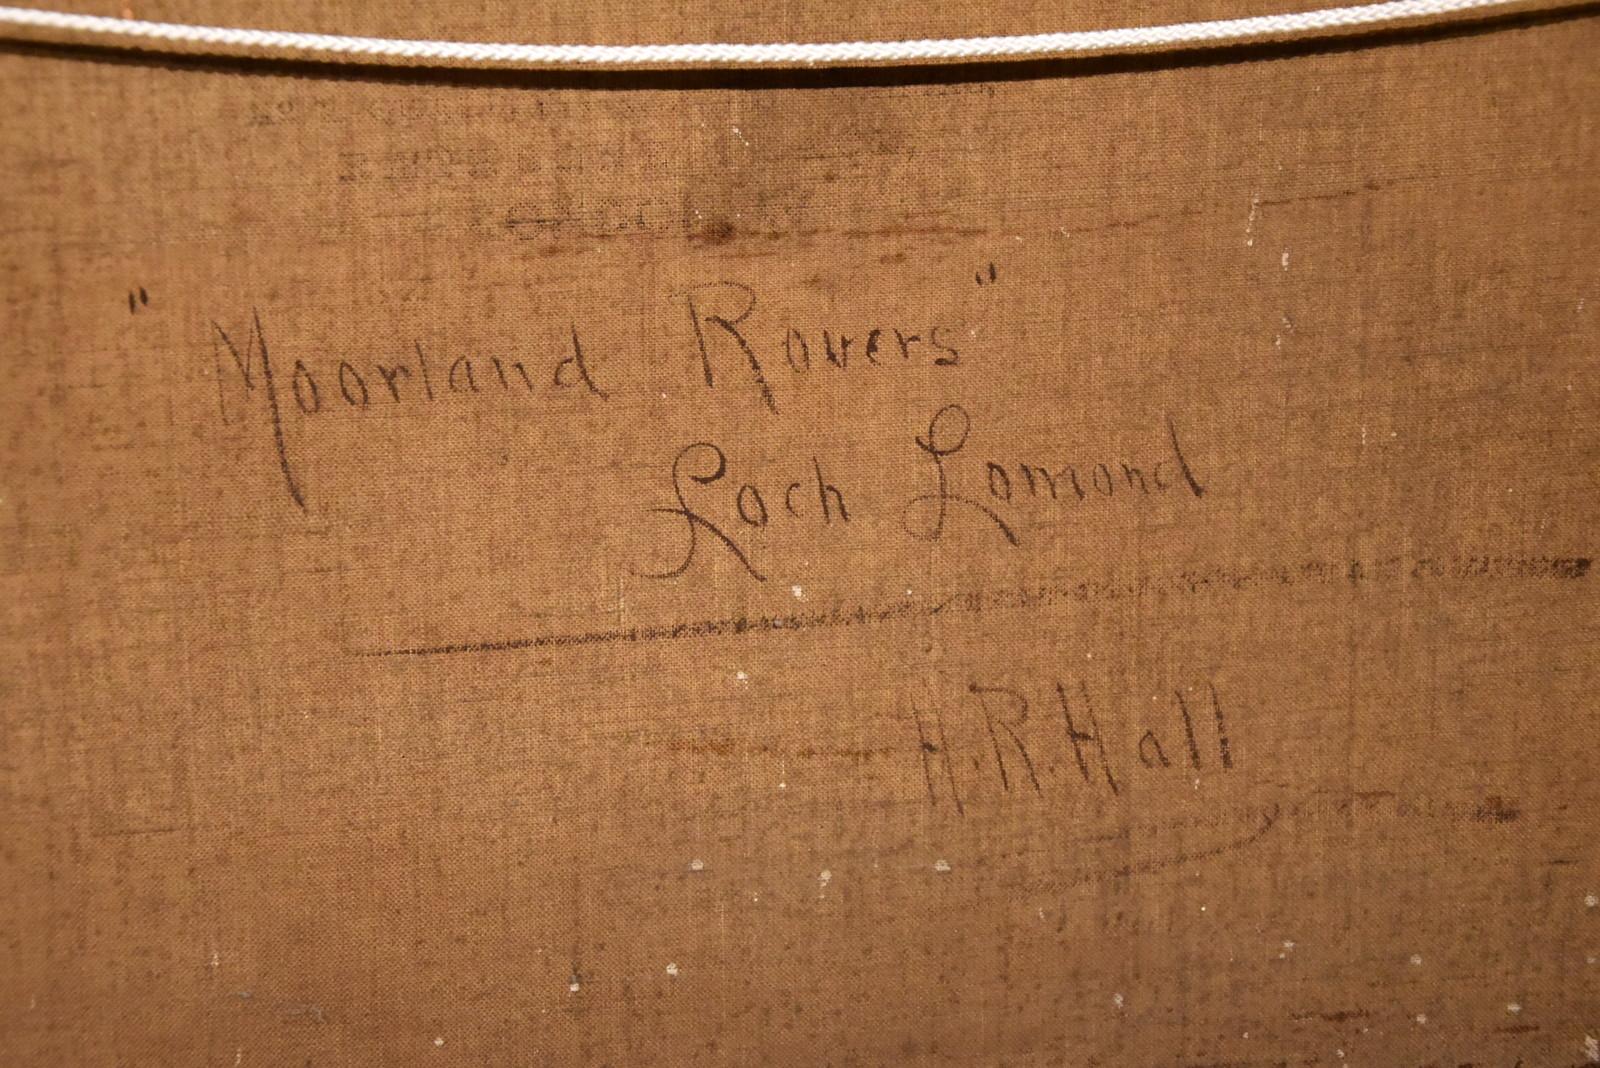 "Moorland Rovers"
Loch Lomond
H.R.Hall